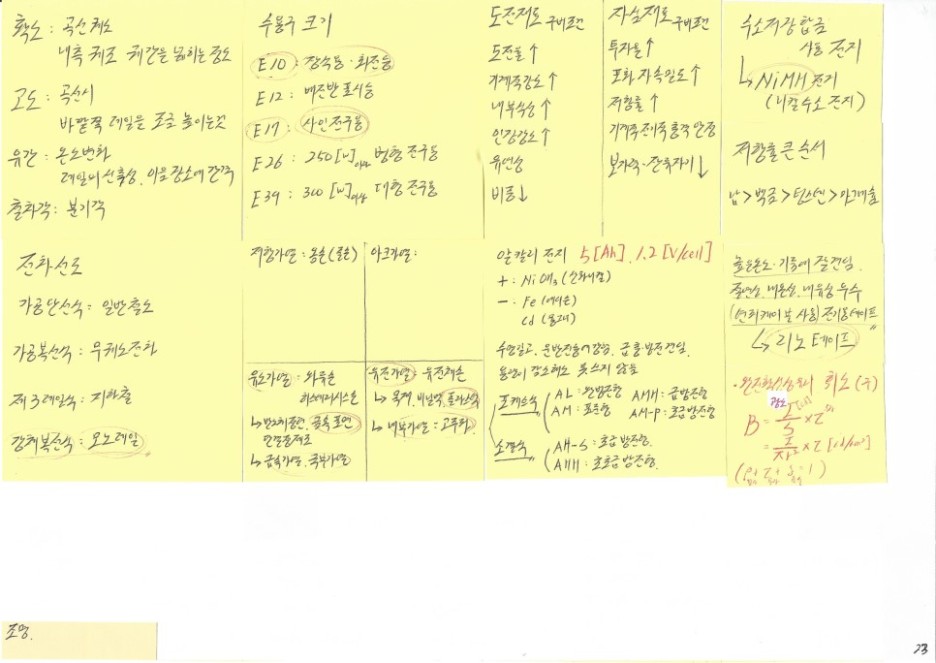 확도 : 곡선 궤도
내측 궤조 궤간을 넓히는 정도
고도 : 곡선시
바깥쪽 레일을 조금 높이는것
유간 : 온도변화
레일의 신축성, 이음 장소에 간격
철차각 : 분기각
수용구 크기
E10 : 장식용·회전등
E12 : 배전반 표시등
E17 : 사인전구용
E26 : 250[W]이하 병형 전구용
E39 : 300[W]이상 대형 전구용
도전재료 구비조건
도전율 ↑
기계적강도 ↑
내부식성 ↑
인장강도 ↑
유연성
비중 ↓
자심재료 구비조건
투자율 ↑
포화 자속밀도 ↑
저항률 ↑
기계적 전기적 충격 안정
보자력·잔류자기 ↓
수소저장합금
사용 전지
↳ NiMH 전지
(니켈수소 전지)
저항률 큰 순서
납 > 백금 > 텅스텐 > 마그네슘
전차선로
가공단선식 : 일반철도
가공복선식 : 무궤도전차
제3레일식 : 지하철
강체복선식 : 모노레일
저항가열 : 옴손(줄손)
아크가열 :
유도가열 : 와류손
히스테리시스손
금속 표면
↳ 금속가열, 국부가열
유전가열 : 유전체손
↳ 목재, 비닐막, 플라스틱
↳ 내부가열 = 고주파
알칼리 전지 5[Ah]. 1.2[V/cell]
+ :
- : Fe (에디슨)
Cd (융그너)
수명길고, 운반진동에강함, 급충방전견딤.
용량이 감소해도 못쓰지 않음
포케트식 AL : 완방전형 AMH : 급방전형
AM : 표준형 AH-P : 초급방전형
소결식 AH-S : 초급방전형.
AHH : 초초급방전형.
높은온도·기름에 잘견딤.
절연성, 내온성, 내유성 우수
(연피케이블 사용) 전기용테이프
↳ 리노 테이프
휘도 (구)
광도
(ρ + τ + α = 1)
조명.
23